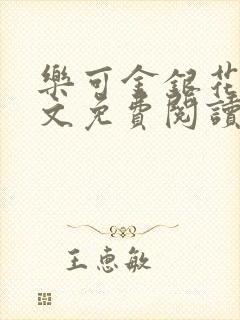 樂可金銀花
文免費閱讀
王惠敏